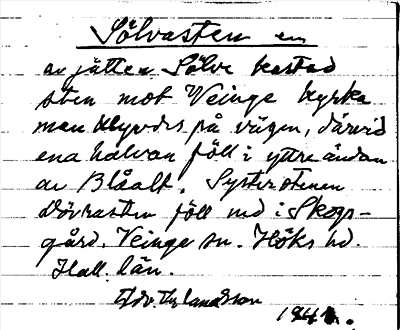 Sölvasten en
av jätten Sölve kastad
sten mot Veinge kyrka
men klyvdes på vägen, därvid
ena halvan föll i yttre ändan
av Blåalt. Systerstenen
Dövrasten föll ned i Skogs-
gård. Veinge sn. Höks hd.
Hall. län.
Edv.
194